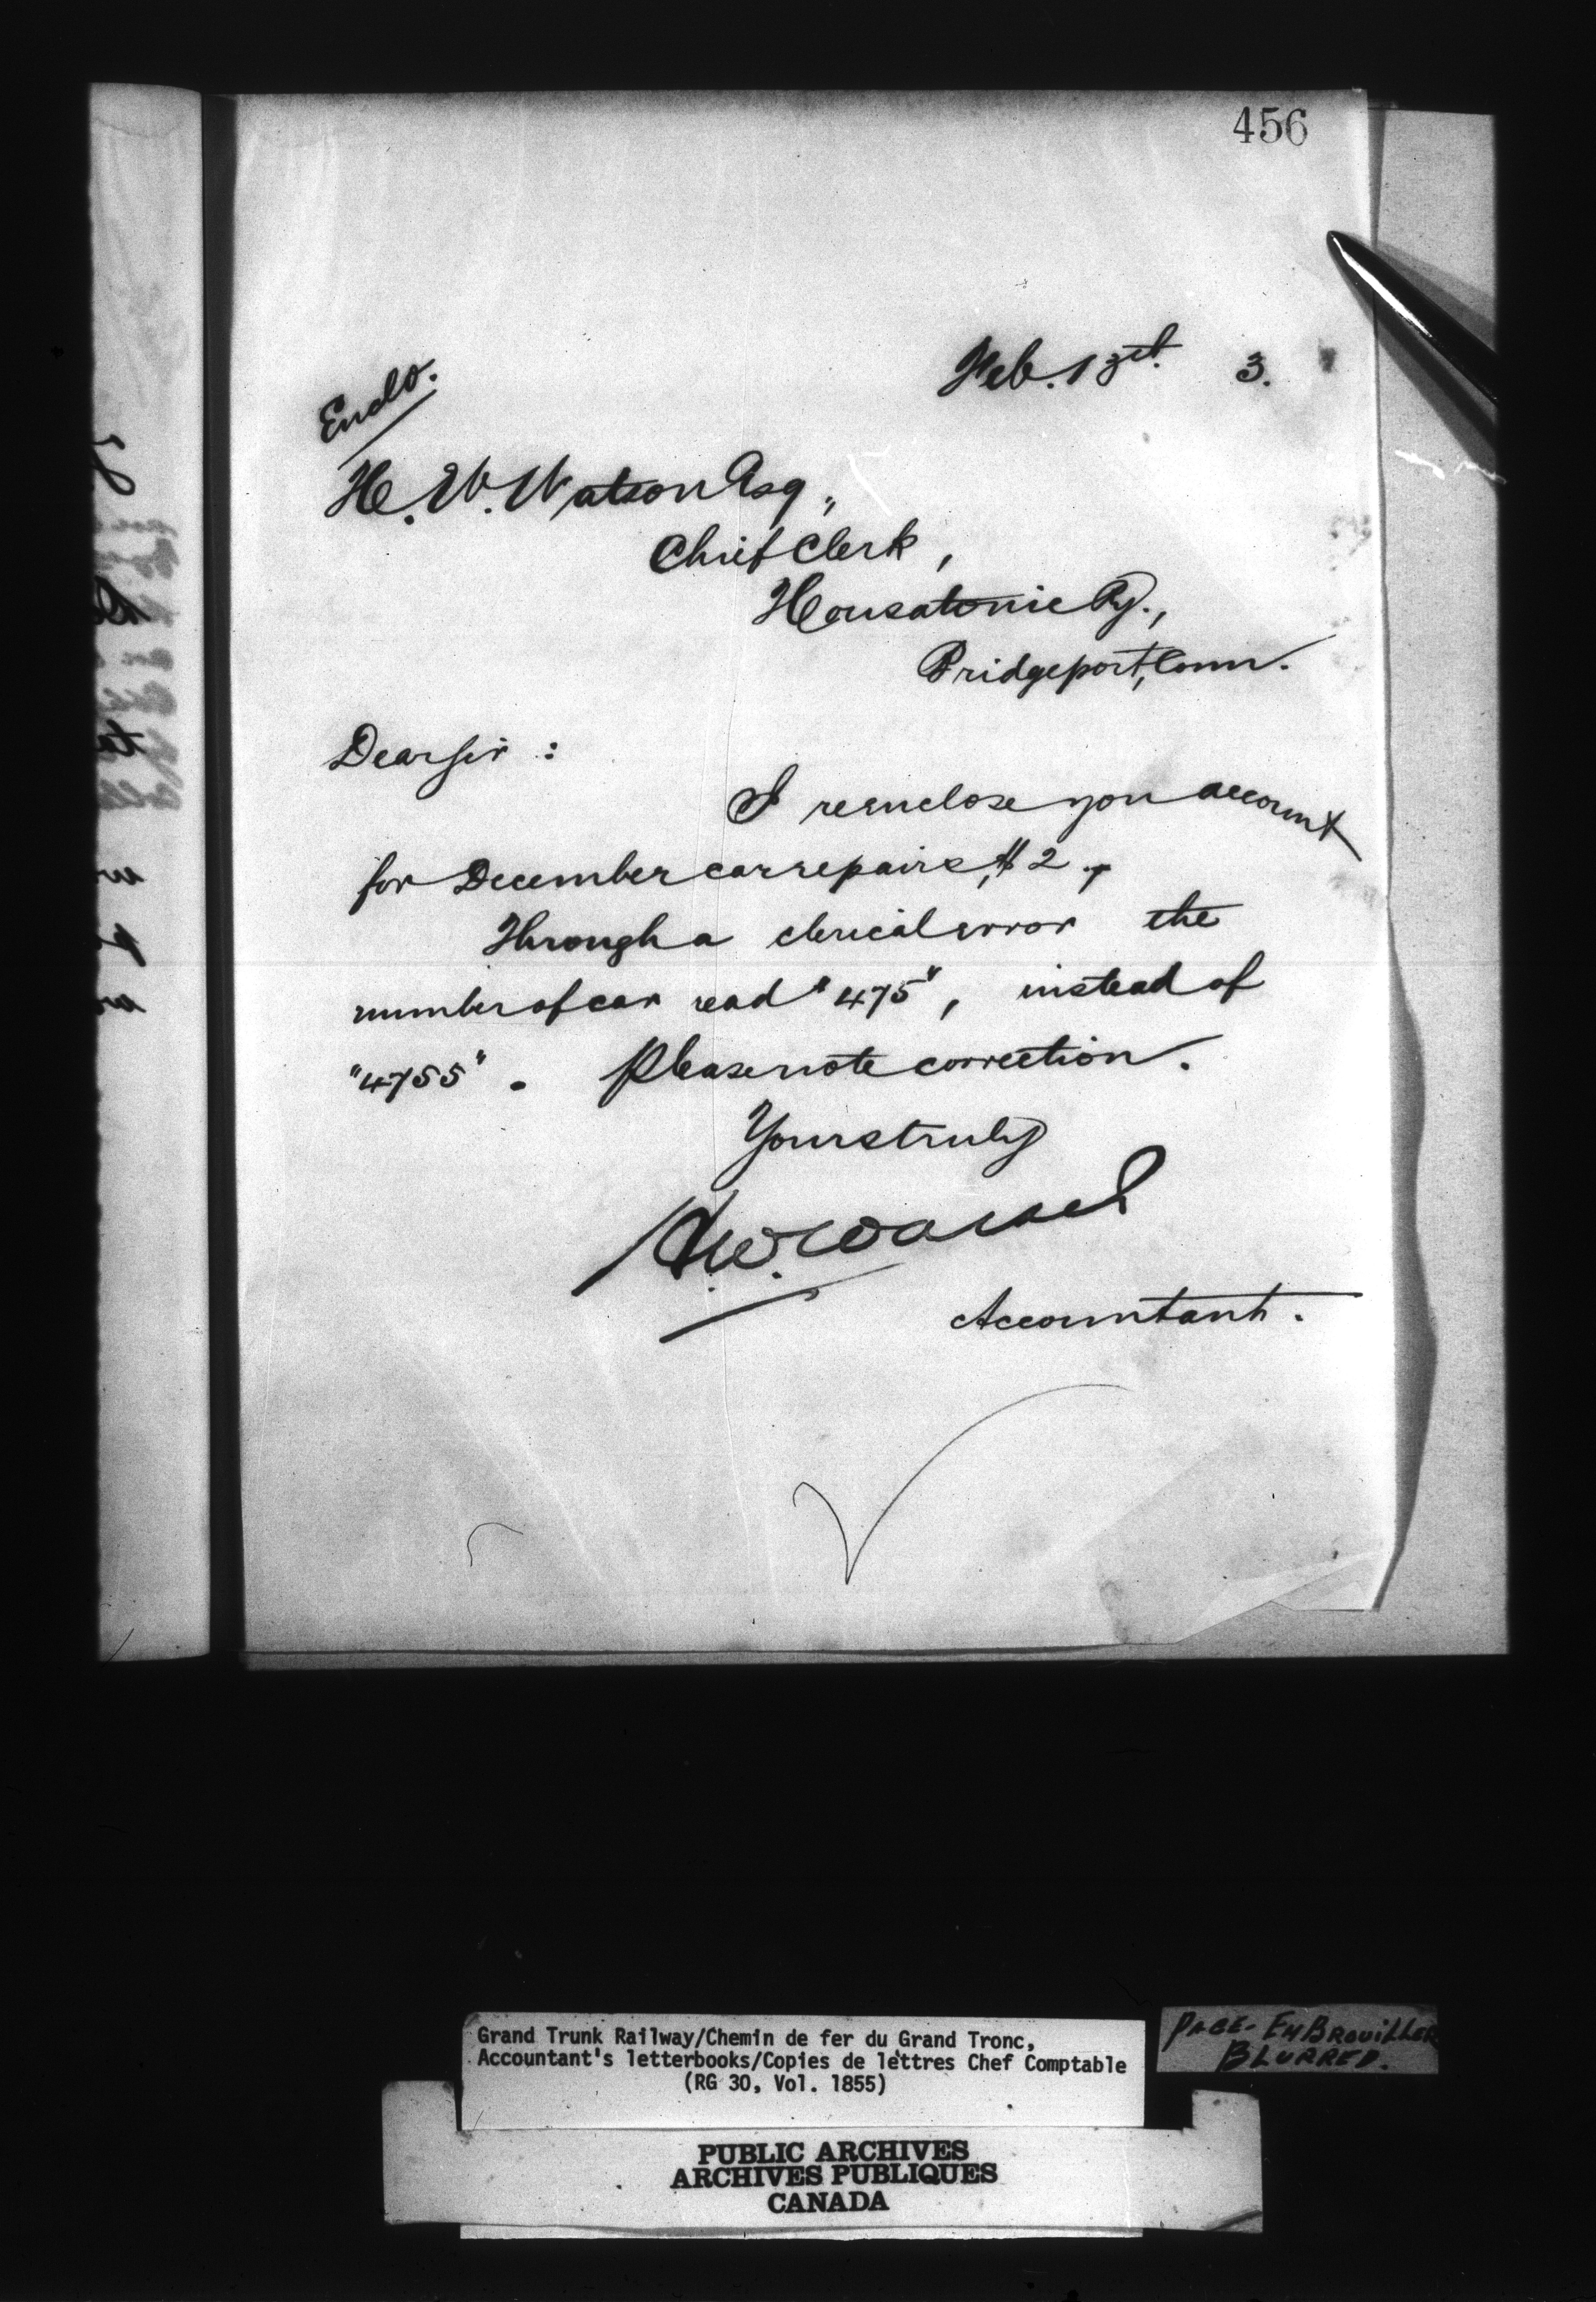 456
Feb. 13th. 3.
Enclo.
H. W. Watson Esq.,
Chief Clerk,
Housatonic Ry.,
Bridgeport, Conn.
Dear Sir :
I reenclose you account
for December car repairs, # 2.
Through a clerical error the
number of car read "475", instead of
"4755". Please note correction.
Yours truly
H.W. Walker
Accountant.
Grand Trunk Railway/Chemin de fer du Grand Tronc,
Accountant's letterbooks/Copies de lettres Chef Comptable
(RG 30, Vol. 1855)
PAGE- EMBROUILLER
BLURRED.
PUBLIC ARCHIVES
ARCHIVES PUBLIQUES
CANADA